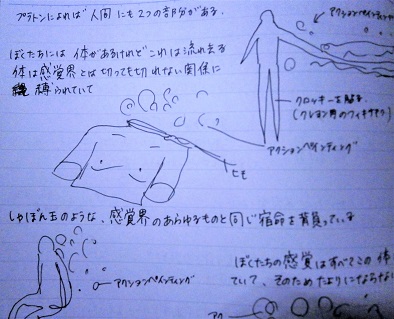 プラトンによれば"人間にも2つの部分がある.
アクションペインティング
ぼくたちには体があるけれどこれは流れ去る
体は感覚界とは切っても切れない関係に
縛られていて
クロッキーを貼る
(クレヨン用のフィキサチフ)
アクションペインティング
ヒモ
しゃぼん玉のような、感覚界のあらゆるものと同じ宿命を背負っている
アクションペインティング
ぼくたちの感覚はすべてこの体
ていて、そのためたよりにならない
アク